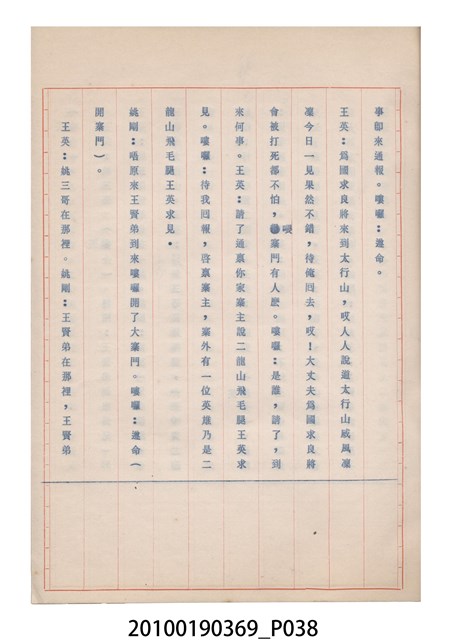 事卽來通報。嘍囉：遵命。
王英：爲國求良將來到太行山，哎人人說道太行山威風凜
凜今日一見果然不錯，待俺囘去，哎！大丈夫爲國求良將
會被打死都不怕，嗄寨門有人麽。嘍囉：是誰，請了，到
來何事。王英：請了通禀你家寨主說二龍山飛毛腿王英求
見。嘍囉：待我囘報，啓禀寨主，寨外有一位英雄乃是二
龍山飛毛腿王英求見。
姚剛：唔原來王賢弟到來嘍囉開了大寨門。嘍囉：遵命（
開寨門）。
王英：姚三哥在那裡。姚剛：王賢弟在那裡，王賢弟
20100190369_P038